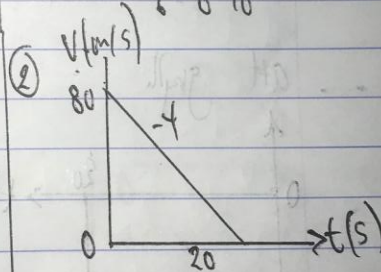 6 0 10
V(m/s)
②
80
-4
0
20
t(s)